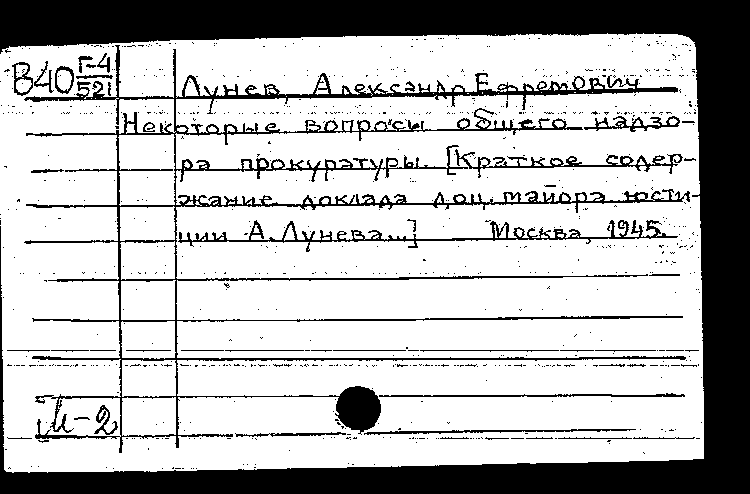 В40 Г-4/521
Лунев, Александр Ефремович
Некоторые вопросы общего надзо-
ра прокуратуры. [Краткое содер-
жание доклада доц. майора юсти-
ции А. Лунева...] Москва, 1945.
М-2